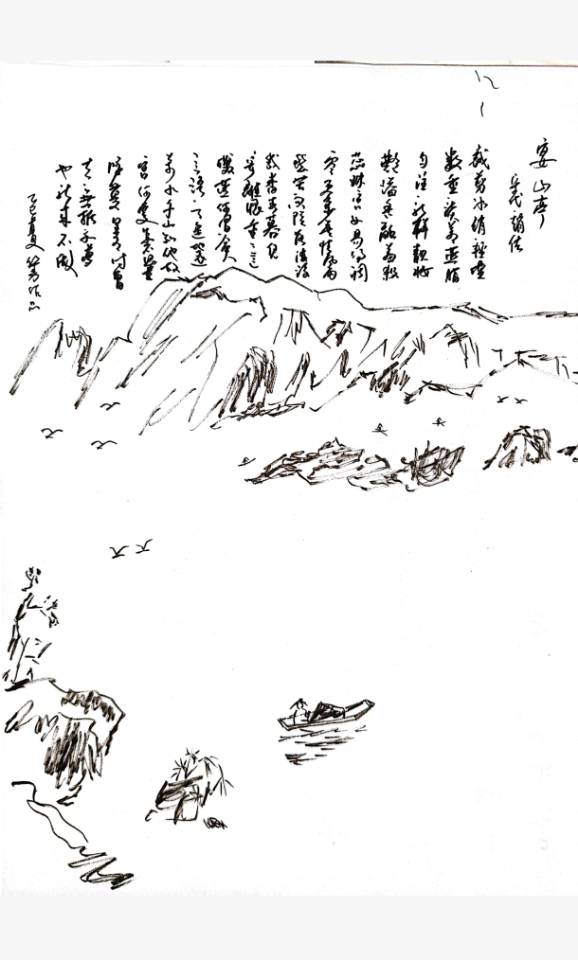 宴山亭
裁剪冰绡轻叠
数重淡著燕脂
匀注新样靓妆
艳溢香融羞杀
蕊珠宫女易得凋
零更多少无情风雨
愁苦问院落凄凉
几番春暮凭
寄离恨重重这
双燕何曾会人
言语天遥地远
万水千山知他故
宫何处怎不思量
除梦里有时曾
去无据和梦
也新来不做
乙巳夏 作品